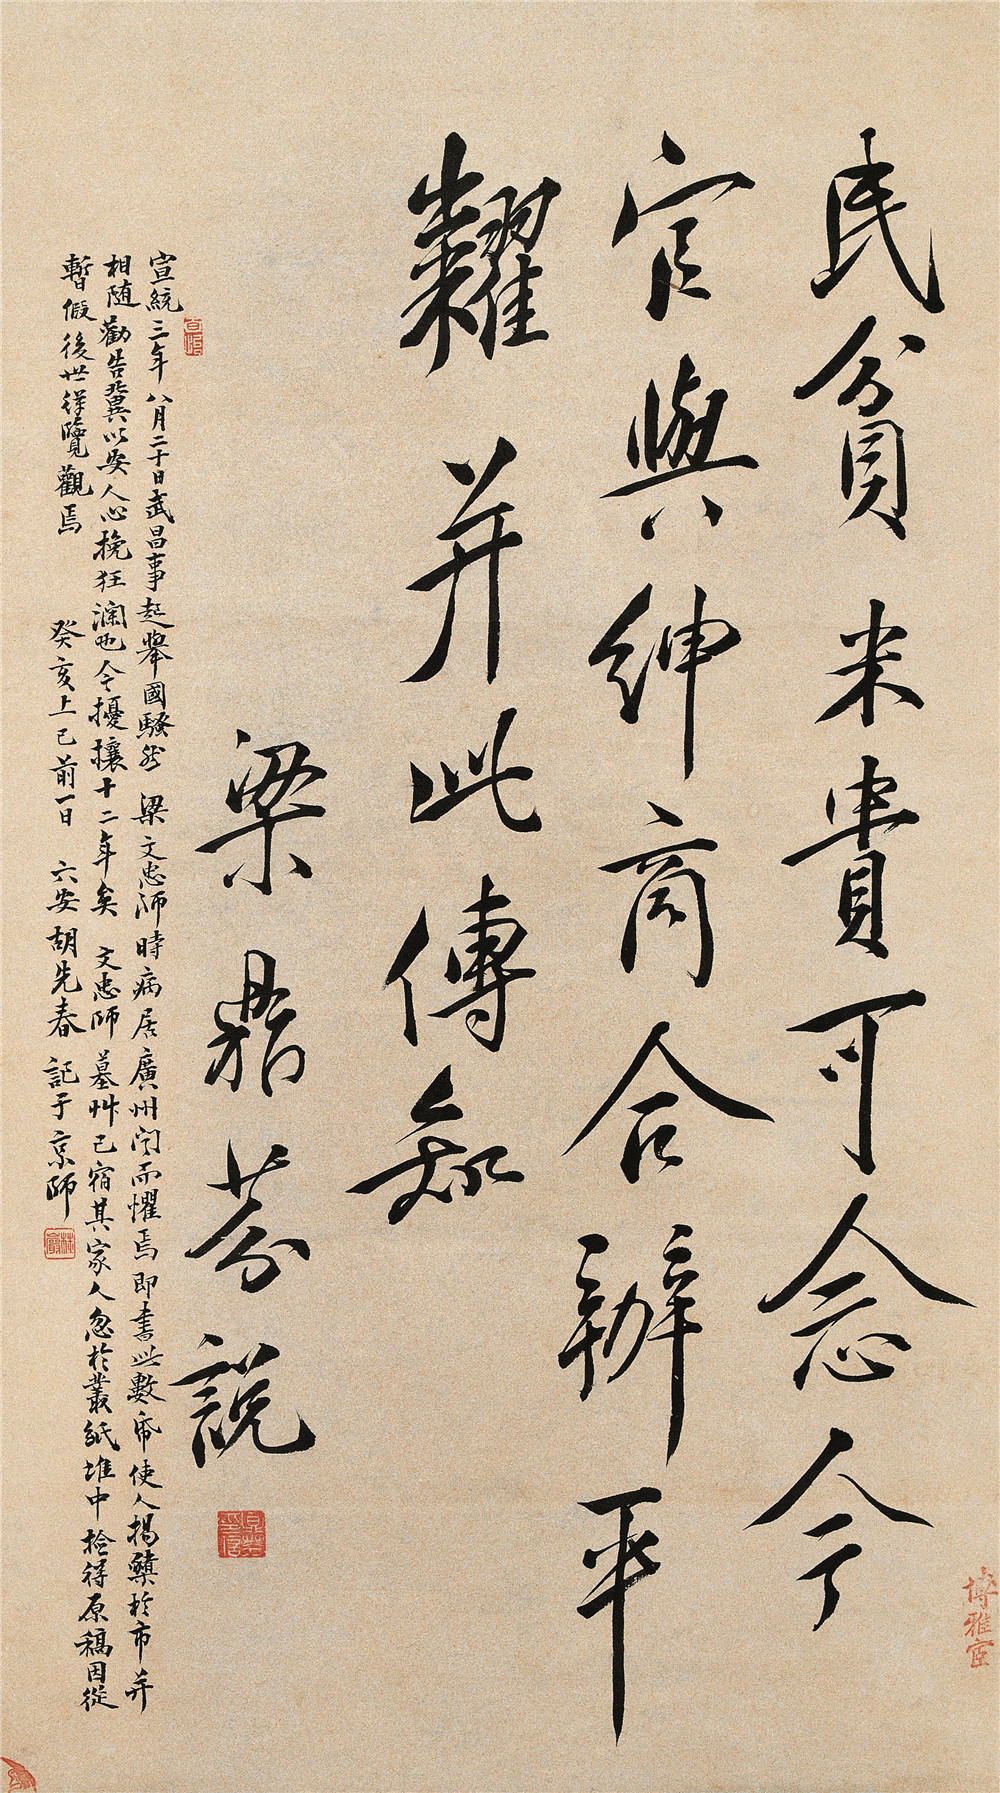 民貧米貴可念今
官與紳商合辦平
糶并此傳知
梁鼎芬說
宣統三年八月二十日武昌事起舉國騷然 梁文忠師時病居廣州聞而懼焉即書此數帋使人揭櫫於市并
相随勸告冀以安人心挽狂瀾也今擾攘十二年矣 文忠師墓艸已宿其家人忽於叢紙堆中撿得原稿因從
暫假後世得覽觀焉 癸亥上巳前一日 六安胡先春記于京師
博雅宦